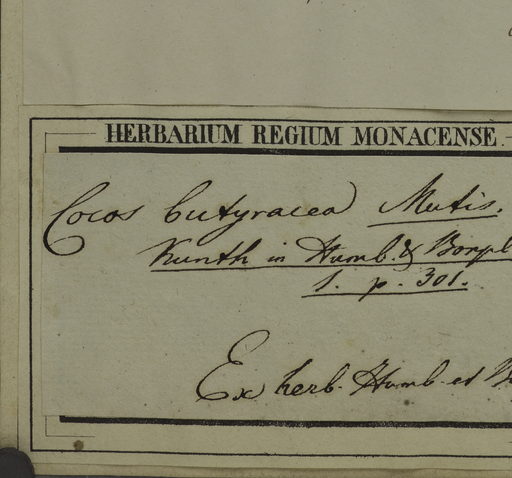 HERBARIUM REGIUM MONACENSE.
Cocos butyracea Mutis.
Kunth in Humb. & Bonpl
1. p. 301.
Ex herb. Humb. et